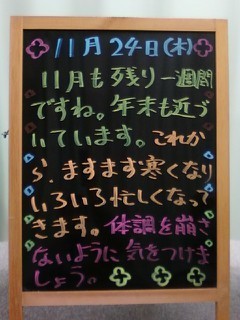 11月24日(木)
11月も残り一週間
ですね。年末も近づ
いています。これか
ら、ますます寒くなり
いろいろ忙しくなって
きます。体調を崩さ
ないように気をつけま
しょう。